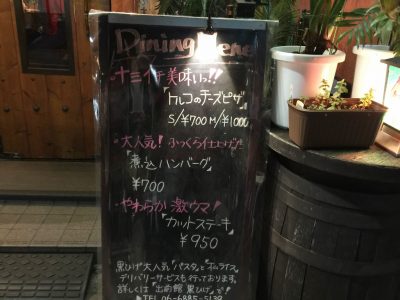 Dining Menu
ナミイチ美味いっ!!
"トルコのチーズピザ"
S/¥700 M/¥1000
大人気! ふっくら仕上げ!
"煮込ハンバーグ"
¥700
やわらか激ウマ!
"カットステーキ"
¥950
黒ひげ大人気"パスタ"と"オムライス"
デリバリーサービスも行っております。
詳しくは"出前館 黒ひげ"で!
TEL 06-6885-5139